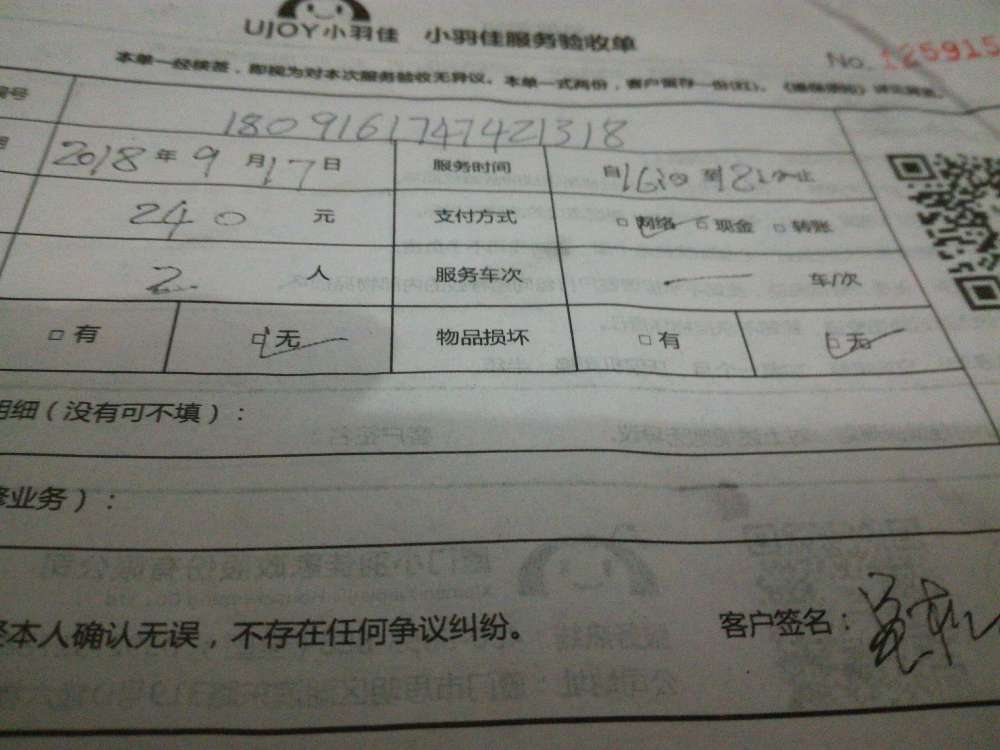 UJOY小羽佳 小羽佳服务验收单
No. 125915
本单一经接签，即视为对本次服务验收无异议。本单一式两份，客户留存一份(红)。
编号 1809161747421318
2018年9月17日 服务时间 自16:00到18:00止
240元 支付方式 □网络 □现金 □转账
2人 服务车次 一 车/次
□有 □无 物品损坏 □有 □无
明细（没有可不填）：
修业务）：
经本人确认无误，不存在任何争议纠纷。 客户签名：